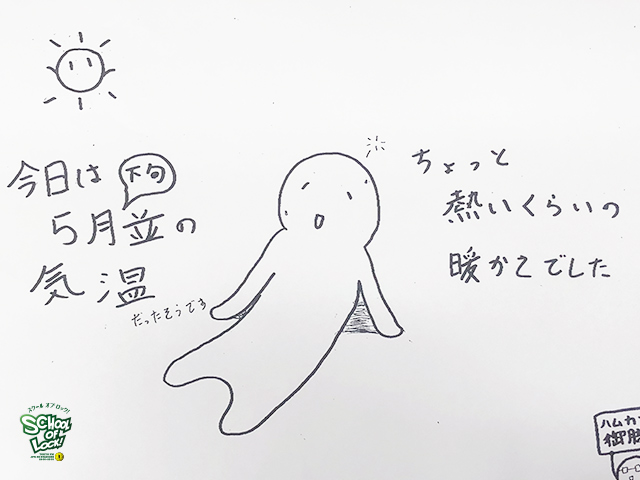 今日は
下旬
5月並の
気温
だったそうです
ちょっと
熱いくらいの
暖かさでした
スクール オブ ロック!
SCHOOL
OF
LOCK!
ハムカ
御